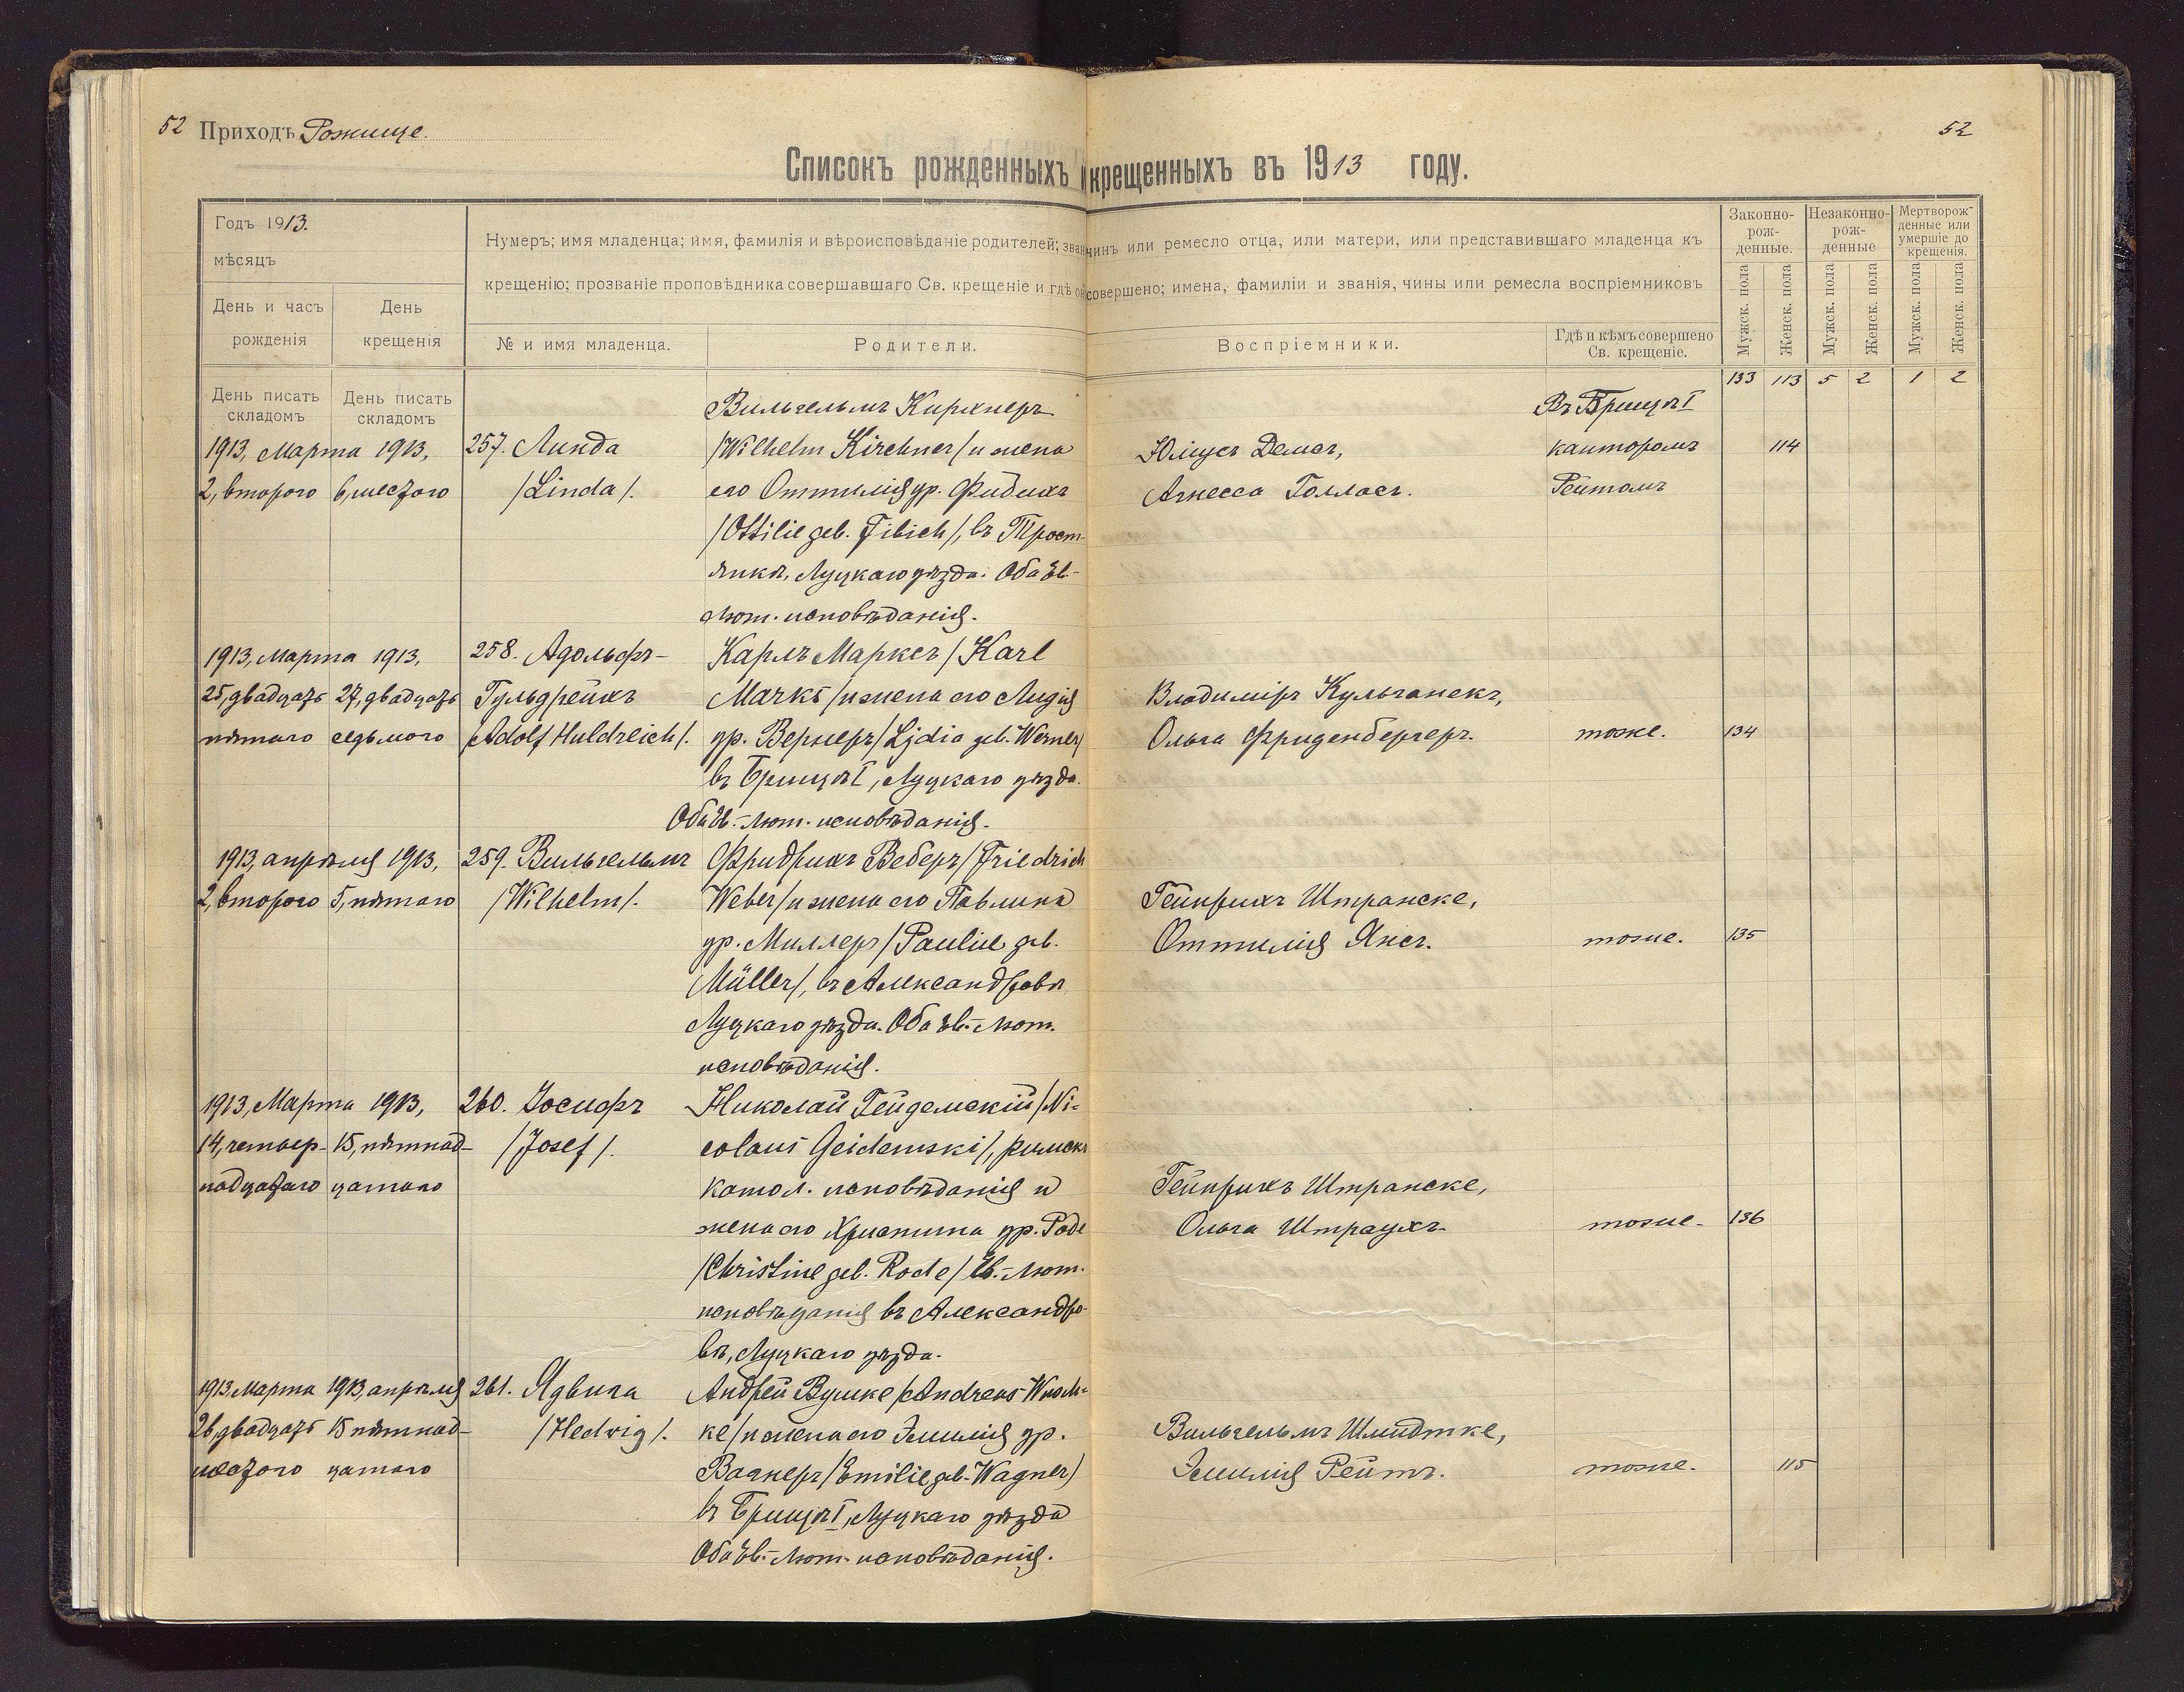 52 Приходъ Рожище.
52
Списокъ рожденныхъ и крещенныхъ въ 1913 году.
Годъ 1913.
мѣсяцъ
День и часъ рожденія
День крещенія
Нумеръ; имя младенца; имя, фамилія и вѣроисповѣданіе родителей; званіе чинъ или ремесло отца, или матери, или представившаго младенца къ
крещенію; прозваніе проповѣдника совершавшаго Св. крещеніе и гдѣ оно совершено; имена, фамиліи и званія, чины или ремесла воспріемниковъ
№ и имя младенца.
Родители.
Воспріемники.
Гдѣ и кѣмъ совершено
Св. крещеніе.
Законно-
рож-
денные.
Незаконно-
рож-
денные
Мертворож-
денные или
умершіе до
крещенія.
Мужск. пола
Женск. пола
Мужск. пола
Женск. пола
Мужск. пола
Женск. пола
День писать
складомъ
День писать
складомъ
133 113 5 2 1 2
Вильгельмъ Кирхнеръ
Въ Брищѣ I
1913, Марта 1913, 257. Линда /Wilhelm Kirchner/ и жена Юліусъ Демсъ, канторомъ 114
2, второго 6, шестого /Linda/. его Оттилія ур. Фибихъ Агнесса Голласъ. Рейтомъ
/Ottilie geb. Fibich/, въ Трост-
янкѣ, Луцкаго уѣзда. Оба Ев.-
Лют. исповѣданія.
1913, Марта 1913, 258. Адольфъ- Карлъ Марксъ /Karl
25, двадцать 27, двадцать Гульдрейхъ Marks/ и жена его Лидія Владиміръ Кульганекъ,
пятаго седьмого /Adolf Huldreich/. ур. Вернеръ /Lydia geb. Werner/ Ольга Фриденбергеръ. тоже. 134
въ Брищѣ I, Луцкаго уѣзда.
Оба Ев.-Лют. исповѣданія.
1913, апрѣля 1913, 259. Вильгельмъ Фридрихъ Веберъ /Friedrich
2, второго 5, пятаго /Wilhelm/. Weber/ и жена его Павлина Гейнрихъ Штранске,
ур. Миллеръ /Pauline geb. Оттилія Янсъ. тоже. 135
Müller/, въ Александровѣ
Луцкаго уѣзда. Оба Ев.-Лют.
исповѣданія.
1913, Марта 1913, 260. Іосифъ Николай Гейдемскій /Ni-
14, четыр- 15, пятнад- /Josef/. colaus Geidemski/, римск.
надцатаго цатаго катол. исповѣданія и Гейнрихъ Штранске,
жена его Христина ур. Роде Ольга Штраухъ. тоже. 136
/Christine geb. Rode/ Ев.-Лют.
исповѣданія въ Александро-
вѣ, Луцкаго уѣзда.
1913, Марта 1913, апрѣля 261. Ядвига Андрей Вушке /Andreas Wusch-
26, двадцать 15 пятнад- /Hedwig/. ke/ и жена его Эмилія ур. Вильгельмъ Шмидтке,
шестого цатаго Вагнеръ /Emilie geb. Wagner/ Эмилія Рейтъ. тоже. 115
въ Брищѣ I, Луцкаго уѣзда
Оба Ев.-Лют. исповѣданія.